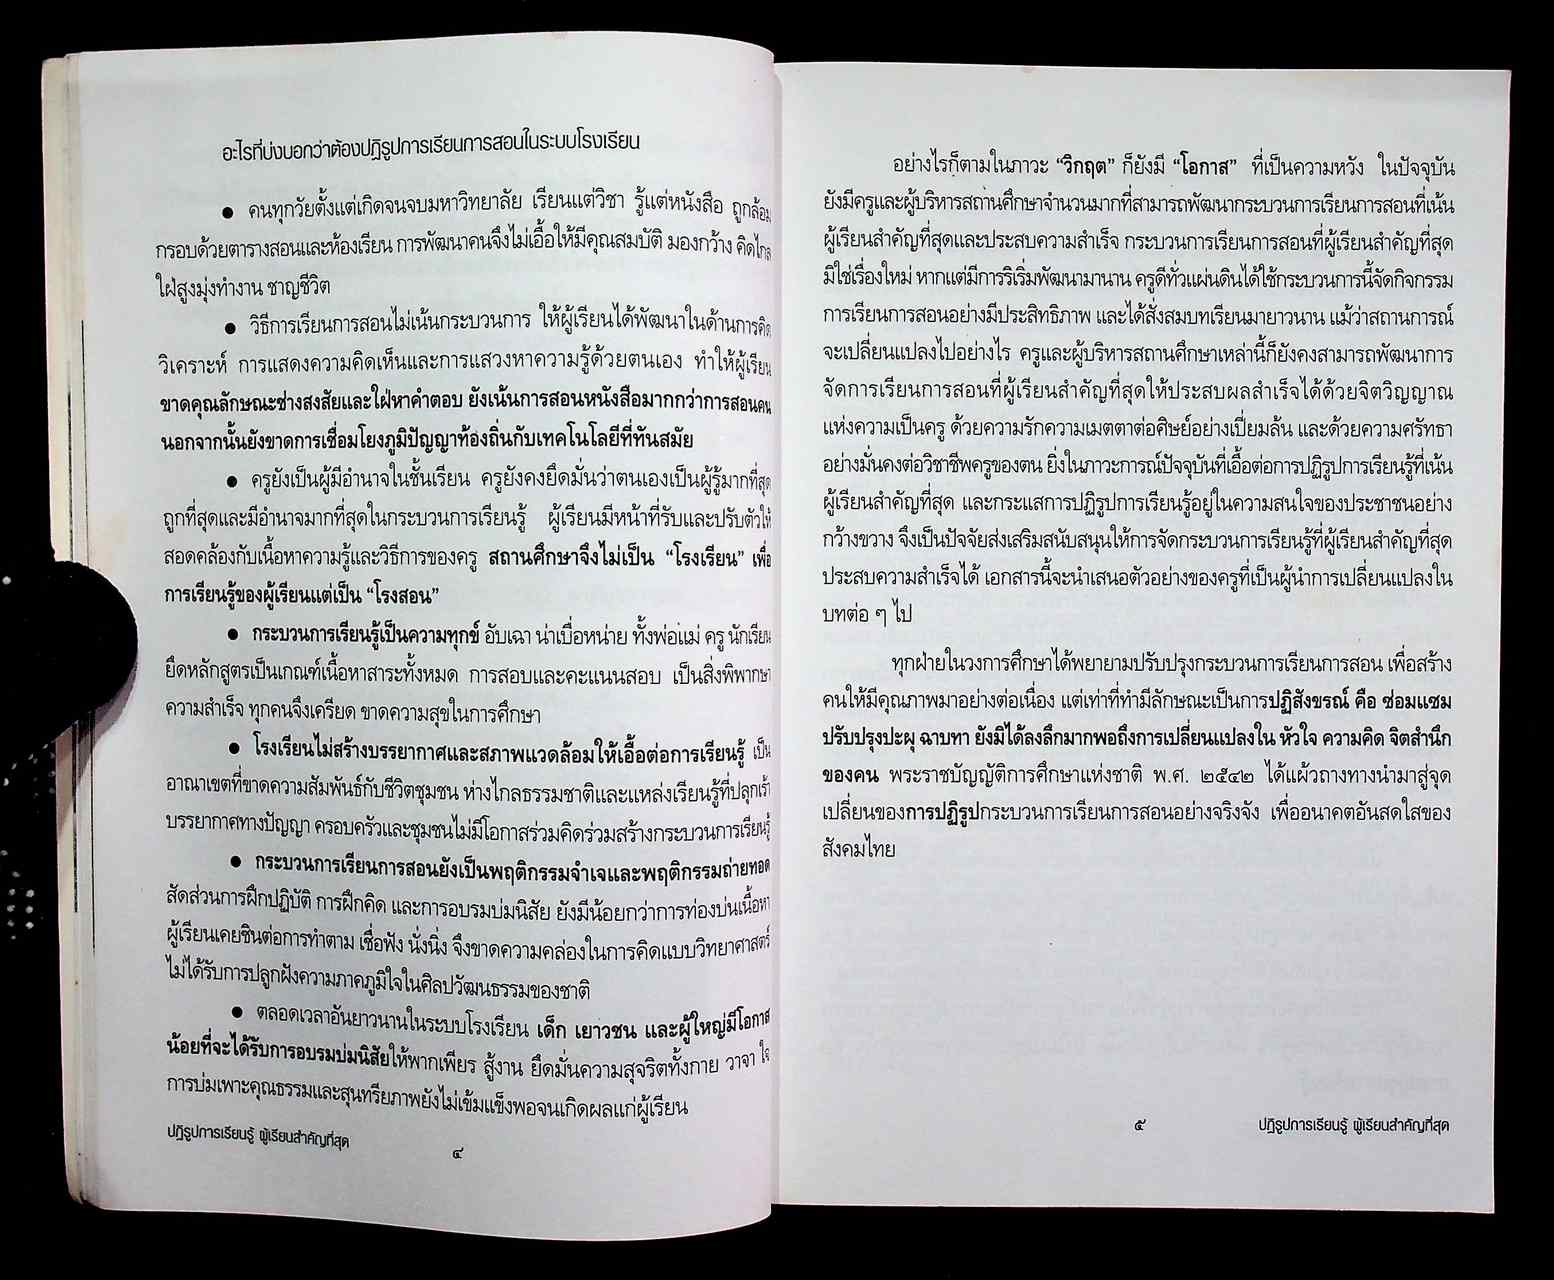 อะไรที่บ่งบอกว่าต้องปฏิรูปการเรียนการสอนในระบบโรงเรียน
● คนทุกวัยตั้งแต่เกิดจนจบมหาวิทยาลัย เรียนแต่วิชา รู้แต่หนังสือ ถูกล้อม
กรอบด้วยตารางสอนและห้องเรียน การพัฒนาคนจึงไม่เอื้อให้มีคุณสมบัติ มองกว้าง คิดไกล
ใฝ่สูงมุ่งทำงาน ชาญชีวิต
● วิธีการเรียนการสอนไม่เน้นกระบวนการ ให้ผู้เรียนได้พัฒนาในด้านการคิด
วิเคราะห์ การแสดงความคิดเห็นและการแสวงหาความรู้ด้วยตนเอง ทำให้ผู้เรียน
ขาดคุณลักษณะช่างสงสัยและใฝ่หาคำตอบ ยังเน้นการสอนหนังสือมากกว่าการสอนคน
นอกจากนั้นยังขาดการเชื่อมโยงภูมิปัญญาท้องถิ่นกับเทคโนโลยีที่ทันสมัย
● ครูยังเป็นผู้มีอำนาจในชั้นเรียน ครูยังคงยึดมั่นว่าตนเองเป็นผู้รู้มากที่สุด
ถูกที่สุดและมีอำนาจมากที่สุดในกระบวนการเรียนรู้ ผู้เรียนมีหน้าที่รับและปรับตัวให้
สอดคล้องกับเนื้อหาความรู้และวิธีการของครู สถานศึกษาจึงไม่เป็น “โรงเรียน” เพื่อ
การเรียนรู้ของผู้เรียนแต่เป็น “โรงสอน”
● กระบวนการเรียนรู้เป็นความทุกข์ อับเฉา น่าเบื่อหน่าย ทั้งพ่อแม่ ครู นักเรียน
ยึดหลักสูตรเป็นเกณฑ์เนื้อหาสาระทั้งหมด การสอบและคะแนนสอบ เป็นสิ่งพิพากษา
ความสำเร็จ ทุกคนจึงเครียด ขาดความสุขในการศึกษา
● โรงเรียนไม่สร้างบรรยากาศและสภาพแวดล้อมให้เอื้อต่อการเรียนรู้ เป็น
อาณาเขตที่ขาดความสัมพันธ์กับชีวิตชุมชน ห่างไกลธรรมชาติและแหล่งเรียนรู้ที่ปลุกเร้า
บรรยากาศทางปัญญา ครอบครัวและชุมชนไม่มีโอกาสร่วมคิดร่วมสร้างกระบวนการเรียนรู้
● กระบวนการเรียนการสอนยังเป็นพฤติกรรมจำเจและพฤติกรรมถ่ายทอด
สัดส่วนการฝึกปฏิบัติ การฝึกคิด และการอบรมบ่มนิสัย ยังมีน้อยกว่าการท่องบ่นเนื้อหา
ผู้เรียนเคยชินต่อการทำตาม เชื่อฟัง นั่งนิ่ง จึงขาดความคล่องในการคิดแบบวิทยาศาสตร์
ไม่ได้รับการปลูกฝังความภาคภูมิใจในศิลปวัฒนธรรมของชาติ
● ตลอดเวลาอันยาวนานในระบบโรงเรียน เด็ก เยาวชน และผู้ใหญ่มีโอกาส
น้อยที่จะได้รับการอบรมบ่มนิสัยให้พากเพียร สู้งาน ยึดมั่นความสุจริตทั้งกาย วาจา ใจ
การบ่มเพาะคุณธรรมและสุนทรียภาพยังไม่เข้มแข็งพอจนเกิดผลแก่ผู้เรียน
ปฏิรูปการเรียนรู้ ผู้เรียนสำคัญที่สุด
๔
อย่างไรก็ตามในภาวะ “วิกฤต” ก็ยังมี “โอกาส” ที่เป็นความหวัง ในปัจจุบัน
ยังมีครูและผู้บริหารสถานศึกษาจำนวนมากที่สามารถพัฒนากระบวนการเรียนการสอนที่เน้น
ผู้เรียนสำคัญที่สุดและประสบความสำเร็จ กระบวนการเรียนการสอนที่ผู้เรียนสำคัญที่สุด
มิใช่เรื่องใหม่ หากแต่มีการริเริ่มพัฒนามานาน ครูดีทั่วแผ่นดินได้ใช้กระบวนการนี้จัดกิจกรรม
การเรียนการสอนอย่างมีประสิทธิภาพ และได้สั่งสมบทเรียนมายาวนาน แม้ว่าสถานการณ์
จะเปลี่ยนแปลงไปอย่างไร ครูและผู้บริหารสถานศึกษาเหล่านี้ก็ยังคงสามารถพัฒนาการ
จัดการเรียนการสอนที่ผู้เรียนสำคัญที่สุดให้ประสบผลสำเร็จได้ด้วยจิตวิญญาณ
แห่งความเป็นครู ด้วยความรักความเมตตาต่อศิษย์อย่างเปี่ยมล้น และด้วยความศรัทธา
อย่างมั่นคงต่อวิชาชีพครูของตน ยิ่งในภาวะการณ์ปัจจุบันที่เอื้อต่อการปฏิรูปการเรียนรู้ที่เน้น
ผู้เรียนสำคัญที่สุด และกระแสการปฏิรูปการเรียนรู้อยู่ในความสนใจของประชาชนอย่าง
กว้างขวาง จึงเป็นปัจจัยส่งเสริมสนับสนุนให้การจัดกระบวนการเรียนรู้ที่ผู้เรียนสำคัญที่สุด
ประสบความสำเร็จได้ เอกสารนี้จะนำเสนอตัวอย่างของครูที่เป็นผู้นำการเปลี่ยนแปลงใน
บทต่อ ๆ ไป
ทุกฝ่ายในวงการศึกษาได้พยายามปรับปรุงกระบวนการเรียนการสอน เพื่อสร้าง
คนให้มีคุณภาพมาอย่างต่อเนื่อง แต่เท่าที่ทำมีลักษณะเป็นการปฏิสังขรณ์ คือ ซ่อมแซม
ปรับปรุงปะผุ ฉาบทา ยังมิได้ลงลึกมากพอถึงการเปลี่ยนแปลงใน หัวใจ ความคิด จิตสำนึก
ของคน พระราชบัญญัติการศึกษาแห่งชาติ พ.ศ. ๒๕๔๒ ได้แผ้วถางทางนำมาสู่จุด
เปลี่ยนของการปฏิรูปกระบวนการเรียนการสอนอย่างจริงจัง เพื่ออนาคตอันสดใสของ
สังคมไทย
๕
ปฏิรูปการเรียนรู้ ผู้เรียนสำคัญที่สุด